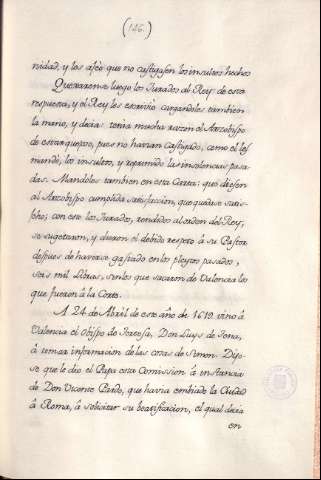 (126)
nidad, y les afeò que no castigasen los insultos hechos
Quexaronse luego los Jurados al Rey de esta
respuesta, y el Rey les escrivio cargandoles tambien
la mano, y decia: tenia mucha razon el Arzobispo
de estar quexoso, pues no havian castigado, como el les
mandò, los insultos, y reprimido las insolencias pasa-
das. Mandoles tambien en esta Carta: que diesen
al Arzobispo cumplida satisfaccion, que quedase satis-
fecho; con esto los Jurados, rendidos al orden del Rey,
se sugetaron, y dieron el debido respeto à su Pastor
despues de haverse gastado en los pleytos pasados,
seis mil Libras, sin los que sacaron de Valencia los
que fueron à la Corte.
A 24 de Abril de este año de 1619 vino à
Valencia el obispo de Tortosa, Don Luys de Tena,
à tomar informacion de las cosas de Simon. Dijo-
se que le dio el Papa esta Comission à instancia
de Don Vicente Pardo, que havia embiado la Ciudad
à Roma, à solicitar su beatificacion, el qual decia
en